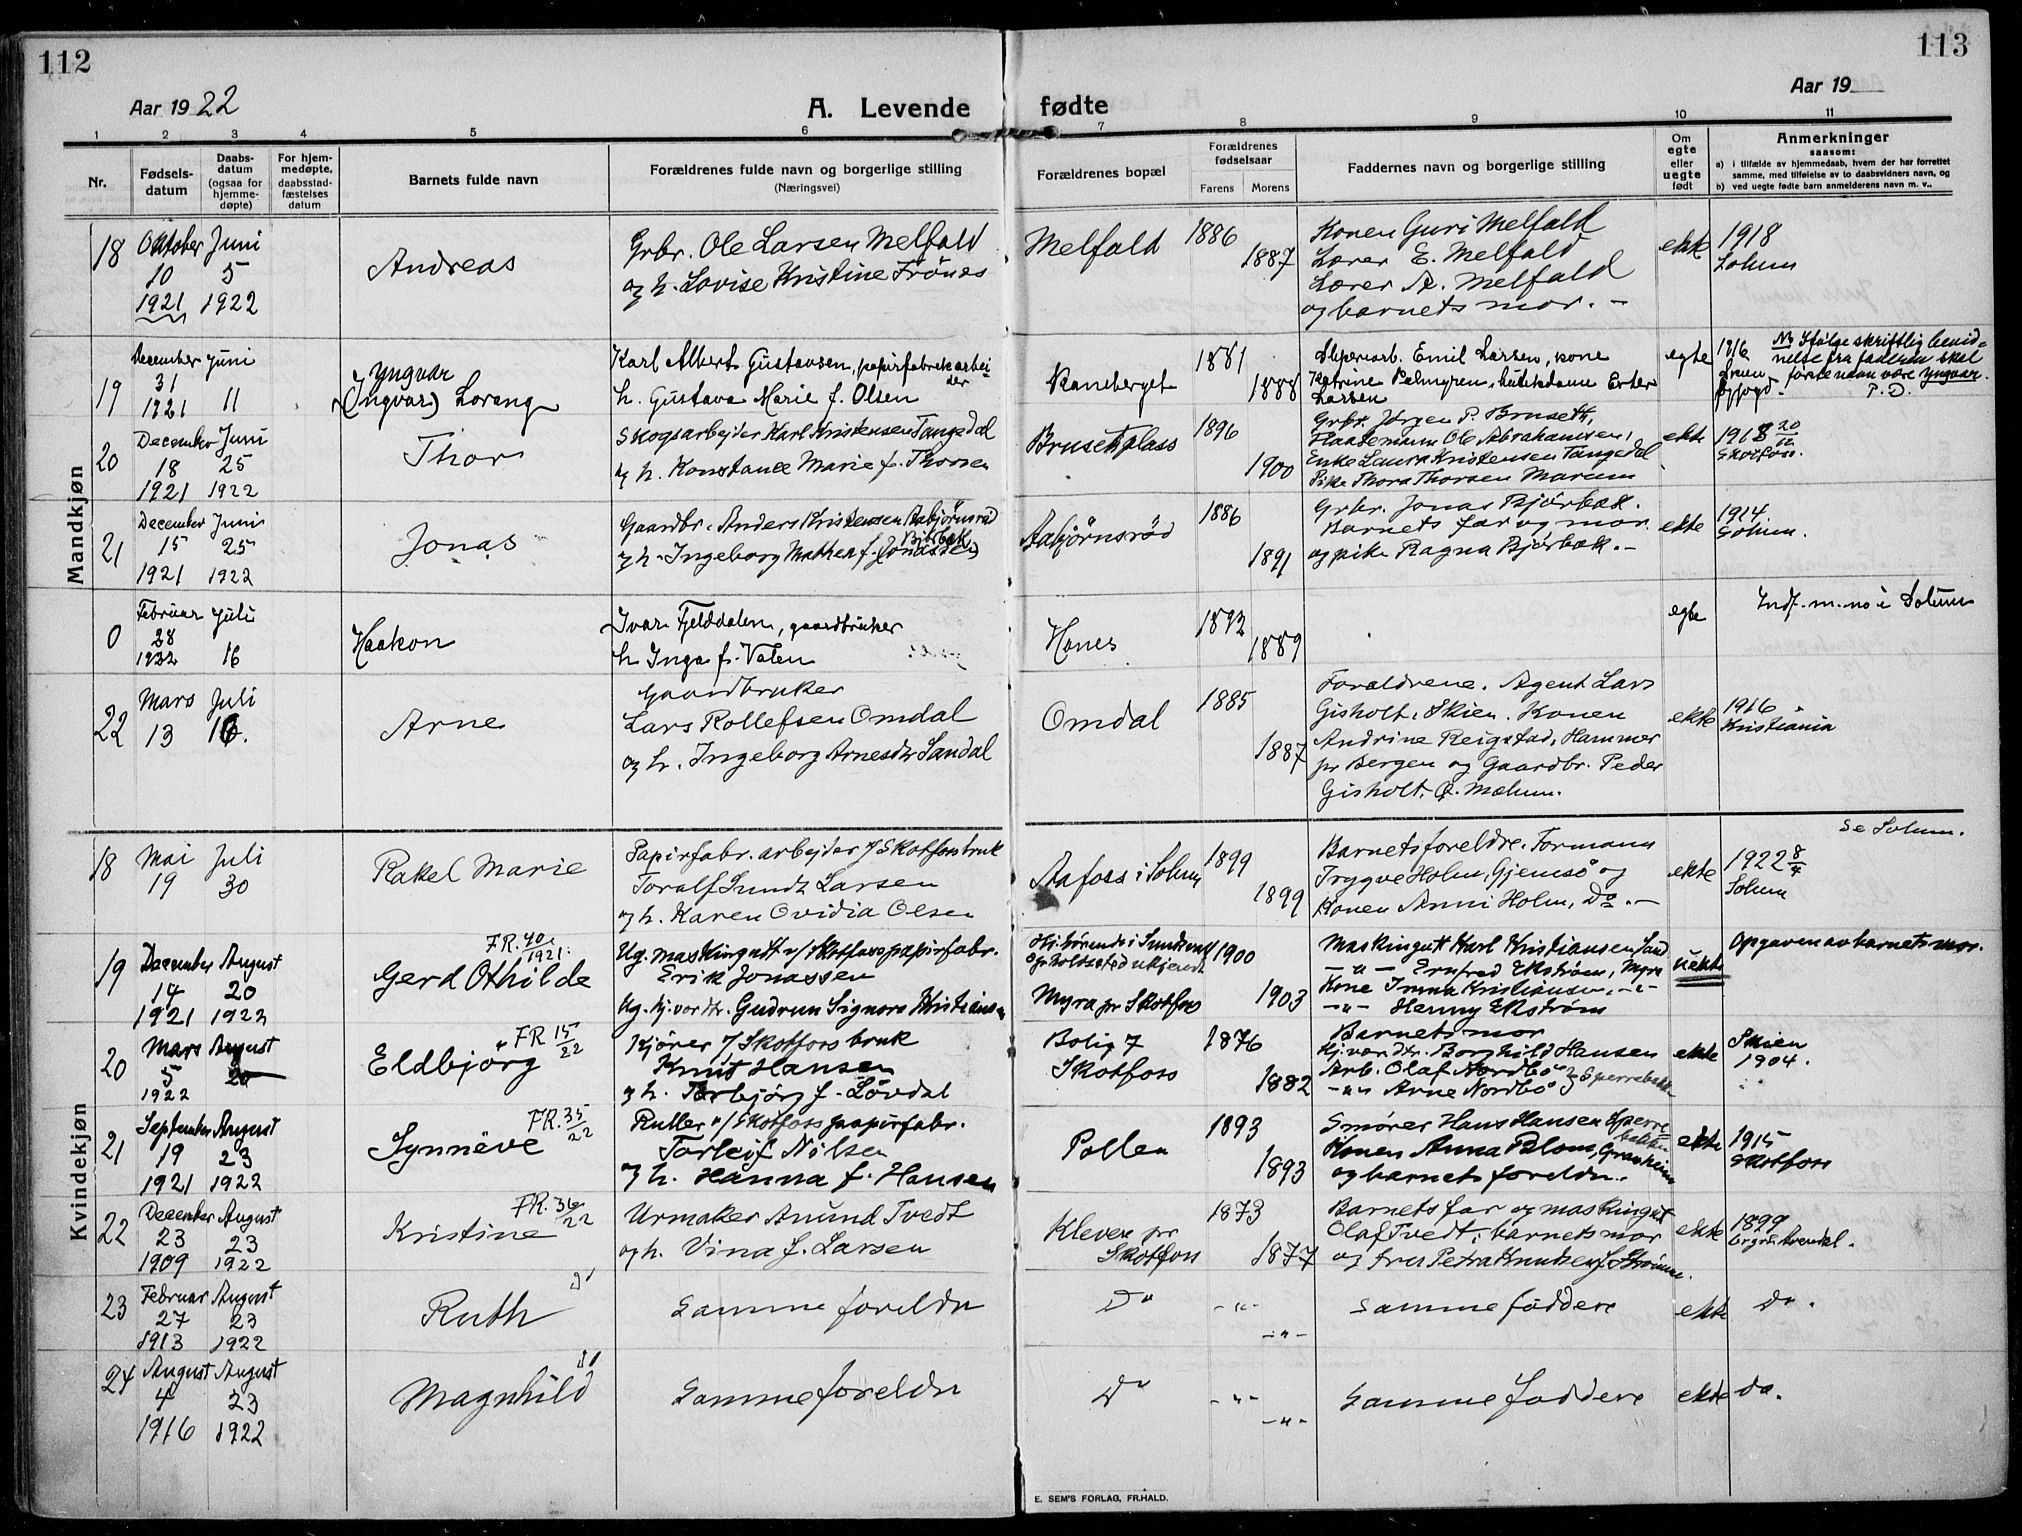 112
113
Aar 1922
A. Levende fødte
Aar 19
1 2 3 4 5 6 7 8 9 10 11
Nr.
Fødsels-
datum
Daabs-
datum
(ogsaa for
hjemme-
døpte)
For hjem-
medøpte,
daabsstad-
fæstelses
datum
Barnets fulde navn
Forældrenes fulde navn og borgerlige stilling
(Næringsvei)
Forældrenes bopæl
Forældrenes
fødselsaar
Farens Morens
Faddernes navn og borgerlige stilling
Om
egte
eller
uegte
født
Anmerkninger
saasom:
a) i tilfælde av hjemmedaab, hvem der har forrettet
samme, med tilføielse av to daabsvidners navn, og
b) ved uegte fødte barn anmelderens navn m. v..
Mandkjøn
18
Oktober Juni
10 5
1921 1922
Andreas
Grbr. Ole Larsen Melfald
og h. Lovise Kristine Frönes
Melfald
1886
1887
Konen Guri Melfald
Lærer E. Melfald
Lærer A. Melfald
og barnets mor. –
ekte
1918
Solum
19
December Juni
31
1921 11
Yngvar
(Ingvar) Lorang
Karl Albert Gustavsen, papirfabrikarbei-
der
h. Gustava Marie f. Olsen
1881
1888
Emil Larsen, kone
Katrine Palmgren, Ester
Larsen
egte
1916
NB Ifølge skriftlig
fra faderen skal
første navn være Yngvar.
P.D.
20
December Juni
18 25
1921 1922
Thor
Skogsarbejder Karl Kristensen Tangedal
og h. Konstance Marie f. Thorsen
Brusetplass
1896
1900
Grbr. Jörgen P. Brusett,
Ole Abrahamsen,
Enke Laura Kristensen Tangedal
Pike Thora Thorsen Marum
ekte
1918 20/12
Skotfoss.
21
December Juni
15 25
1921 1922
Jonas
Gaardbr. Anders Kristensen Aabjörnsröd
Björbæk
og h. Ingeborg Mathea f. (Jonassen)
Aabjörnsröd
1886
1891
Grbr. Jonas Björbæk.
Barnets far og mor
og pike Ragna Björbæk. –
ekte
1914
Solum.
0
Februar Juli
28
1922 16
Haakon
Ivar Fjelddalen, gaardbruker
h. Inga f. Valen
Hanes
1892
1889
egte
Indf. m. no i Solum
22
Mars Juli
13 16.
Arne
Gaardbruker
Lars Rollefsen Omdal
og h. Ingeborg Arnesdtr Sandal
Omdal
1885
1887
Forældrene. Agent Lars
Gisholt, Skien. Konen
Andrine Reigstad, Hammer
pr Bergen og Gaardbr. Peder
Gisholt, Ø. Mælum.
ekte
1916
Kristiania
Kvindekjøn
18
Mai Juli
19 30
Rakel Marie
Papirfabr. arbejder v/ Skotfossbruk
Toralf Sundt Larsen
og h. Karen Ovidia Olsen
Aafoss i Solum
1899
1899
Barnets foreldre. Formann
Trygve Holm, Gjemsö og
Konen Anni Holm, Do. –
ekte
se Solum.
1922 8/4
Solum
19
December August
14 20
1921 1922
FR. 40/1921.
Gerd Othilde
Ug. maskingutt v/ Skotfoss papirfabr.
Erik Jonassen
Ug. hj.v.dtr. Gudrun Signora Kristians
Hj.hörende i
opholdssted ukjendt
Myra pr Skotfoss
1900
1903
Maskingutt Karl Kristiansen,
– " – Ernfred Ekström, Myra
Kone Inma Kristiansen, –"–
–"– Henny Ekström
uekte
Opgaven av barnets mor.
20
Mars August
5 20
1922
FR 15/22
Eldbjörg
Kjörer v/ Skotfoss bruk
Knut Hansen
og h. Torbjörg f. Lövdal
Bolig 7
Skotfoss
1876
1882
Barnets mor
Hj.vær.dtr. Borghild Hansen
Arb. Olaf Nordbö
–"– Arne Nordbö } Sperrebakken
ekte
Skien
1904.
21
September August
19 23
1921 1922
FR. 35/22
Synnöve
Ruller v/ Skotfoss papirfabr.
Torleif Nilsen
og h. Hanna f. Hansen
Pollen
1893
1893
Smörer Hans Hansen Sperre-
bakken
Konen Anna Palom, Gravheim
og barnets foreldr.
ekte
1915
Skotfoss
22
December August
23 23
1909 1922
FR. 36/22
Kristine
Urmaker Anund Tvedt
og h. Vina f. Larsen
Kleven pr
Skotfoss
1873
1877
Barnets far og maskingut
Olaf Tvedt, barnets mor
og fru Petra Knutsen f. Strömme.
ekte
1899
23
Februar August
27 23
1913 1922
Ruth
Samme foreldr
Do
–"–
–"–
Samme faddere
ekte
Do.
24
August August
4 23
1916 1922
Magnhild
Samme foreldr
Do
–"–
–"–
Samme faddere
ekte
Do.
E. SEM'S FORLAG, FR.HALD.